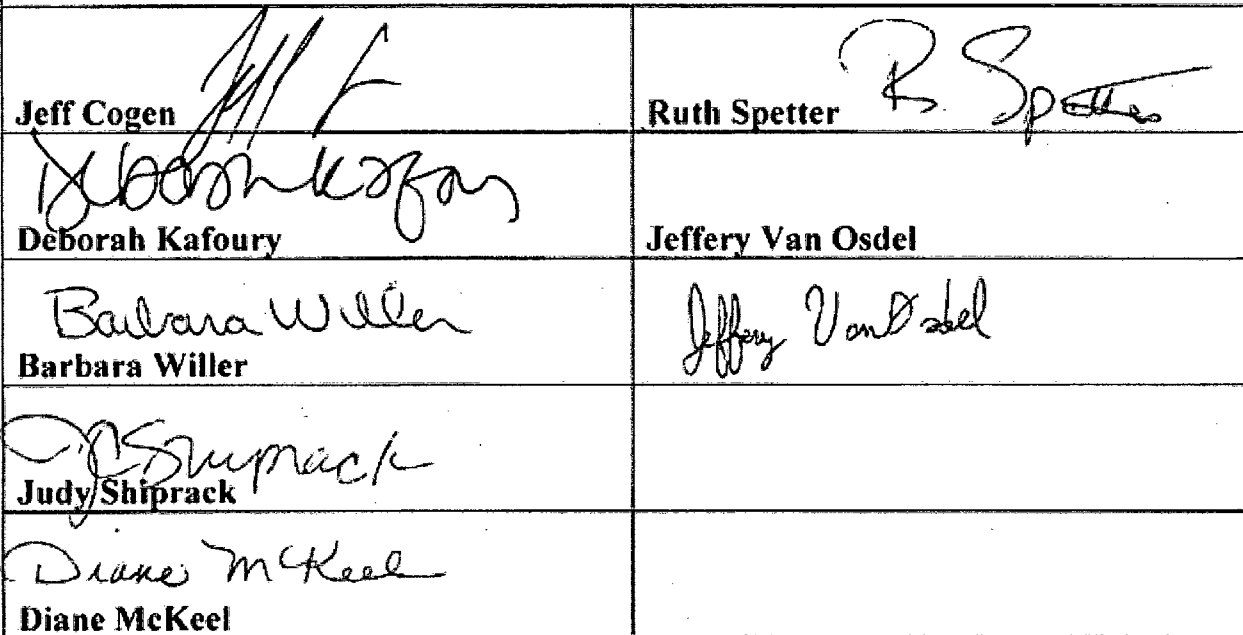 Jeff Cogen
Ruth Spetter R. Spetter
Deborah Kafoury
Deborah Kafoury
Jeffery Van Osdel
Barbara Willer
Barbara Willer
Jeffery Van Osdel
JC Shiprack
Judy Shiprack
Diane McKeel
Diane McKeel